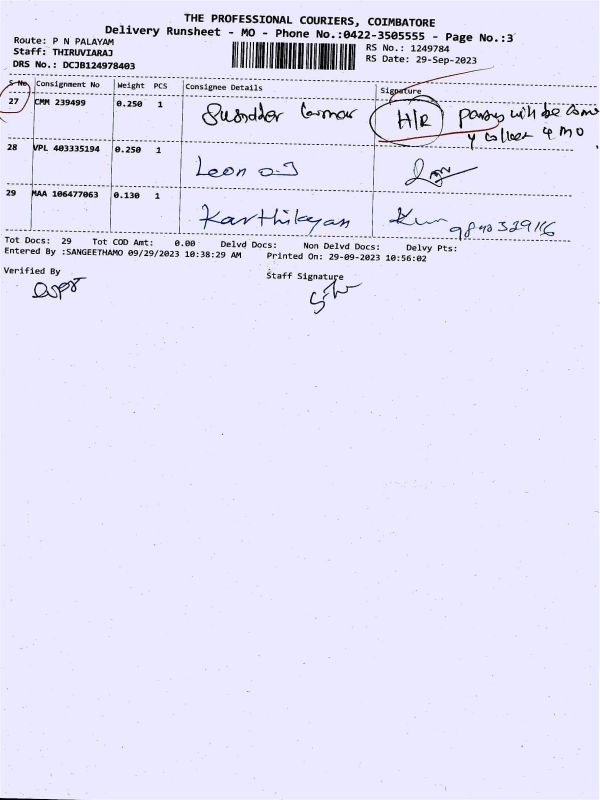 THE PROFESSIONAL COURIERS, COIMBATORE
Delivery Runsheet - MO - Phone No.:0422-3505555 - Page No.:3
Route: P N PALAYAM
Staff: THIRUVIARAJ
DRS No.: DCJB124978403
RS No.: 1249784
RS Date: 29-Sep-2023
S No Consignment No Weight PCS Consignee Details Signature
27 CMM 239499 0.250 1 H/R party will be
collect MO
28 VPL 403335194 0.250 1
Leon
29 MAA 106477063 0.130 1
Karthikayan
Tot Docs: 29 Tot COD Amt: 0.00 Delvd Docs: Non Delvd Docs: Delvy Pts:
Entered By :SANGEETHAMO 09/29/2023 10:38:29 AM Printed On: 29-09-2023 10:56:02
Verified By Staff Signature